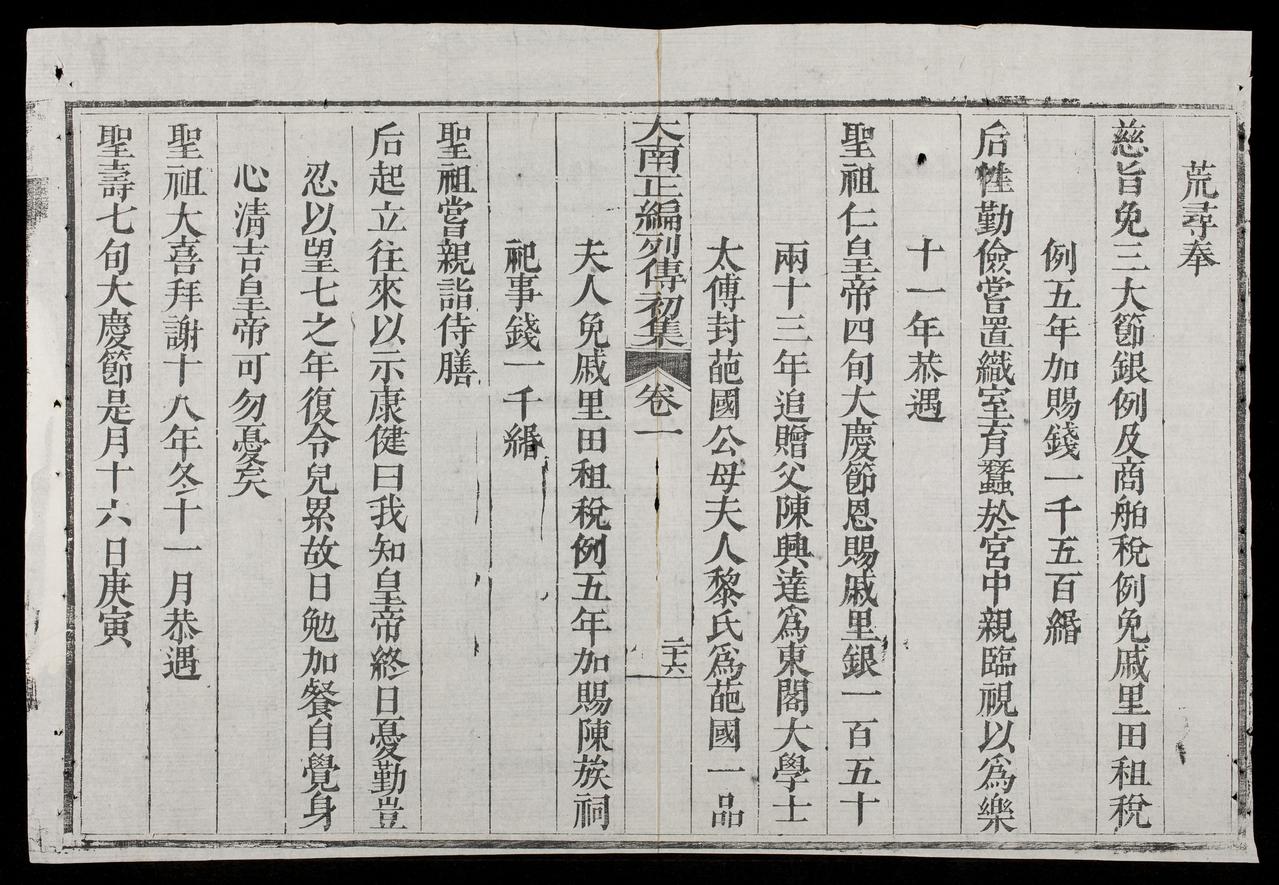 荒尋奉
慈旨免三大節銀例及商舶稅例免戚里田租稅
例五年加賜錢一千五百緡
后惟勤儉嘗置織室育蠶於宮中親臨視以爲樂
十一年恭遇
聖祖仁皇帝四旬大慶節恩賜戚里銀一百五十
兩十三年追贈父陳興達爲東閣大學士
太傅封葩國公母夫人黎氏爲葩國一品
大南正編列傳初集 卷一 二十六
夫人免戚里田租稅例五年加賜陳族祠
祀事錢一千緡
聖祖嘗親詣侍膳
后起立往來以示康健曰我知皇帝終日憂勤豈
忍以望七之年復令兒累故日勉加餐自覺身
心清吉皇帝可勿憂矣
聖祖大喜拜謝十八年冬十一月恭遇
聖壽七旬大慶節是月十六日庚寅